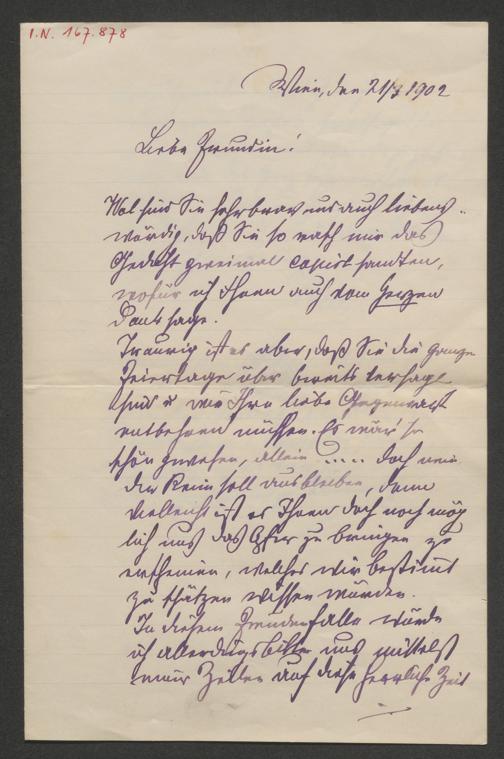 I.N. 167.878
Wien, den 21/3 1902
Liebe Freundin!
Wol sind Sie sehr brav und auch liebens-
würdig, daß Sie so rasch mir das
Gedicht zweimal copirt sandten,
wofür ich Ihnen auch von Herzen
Dank sage.
Traurig ist es aber, daß Sie die ganze
Feiertage über bereits versagt
sind u wir Ihre liebe Gegenwart
entbehren müssen. Es wär' so
schön gewesen, allein .... doch nein
der Reim soll ausbleiben, denn
vielleicht ist es Ihnen doch noch mög
lich uns das Opfer zu bringen zu
erscheinen, welches wir bestimt
zu schätzen wissen würden.
In diesem Freudenfalle würde
ich allerdings bitten uns mittelst
einer Zeilen auf diese herrliche Zeit